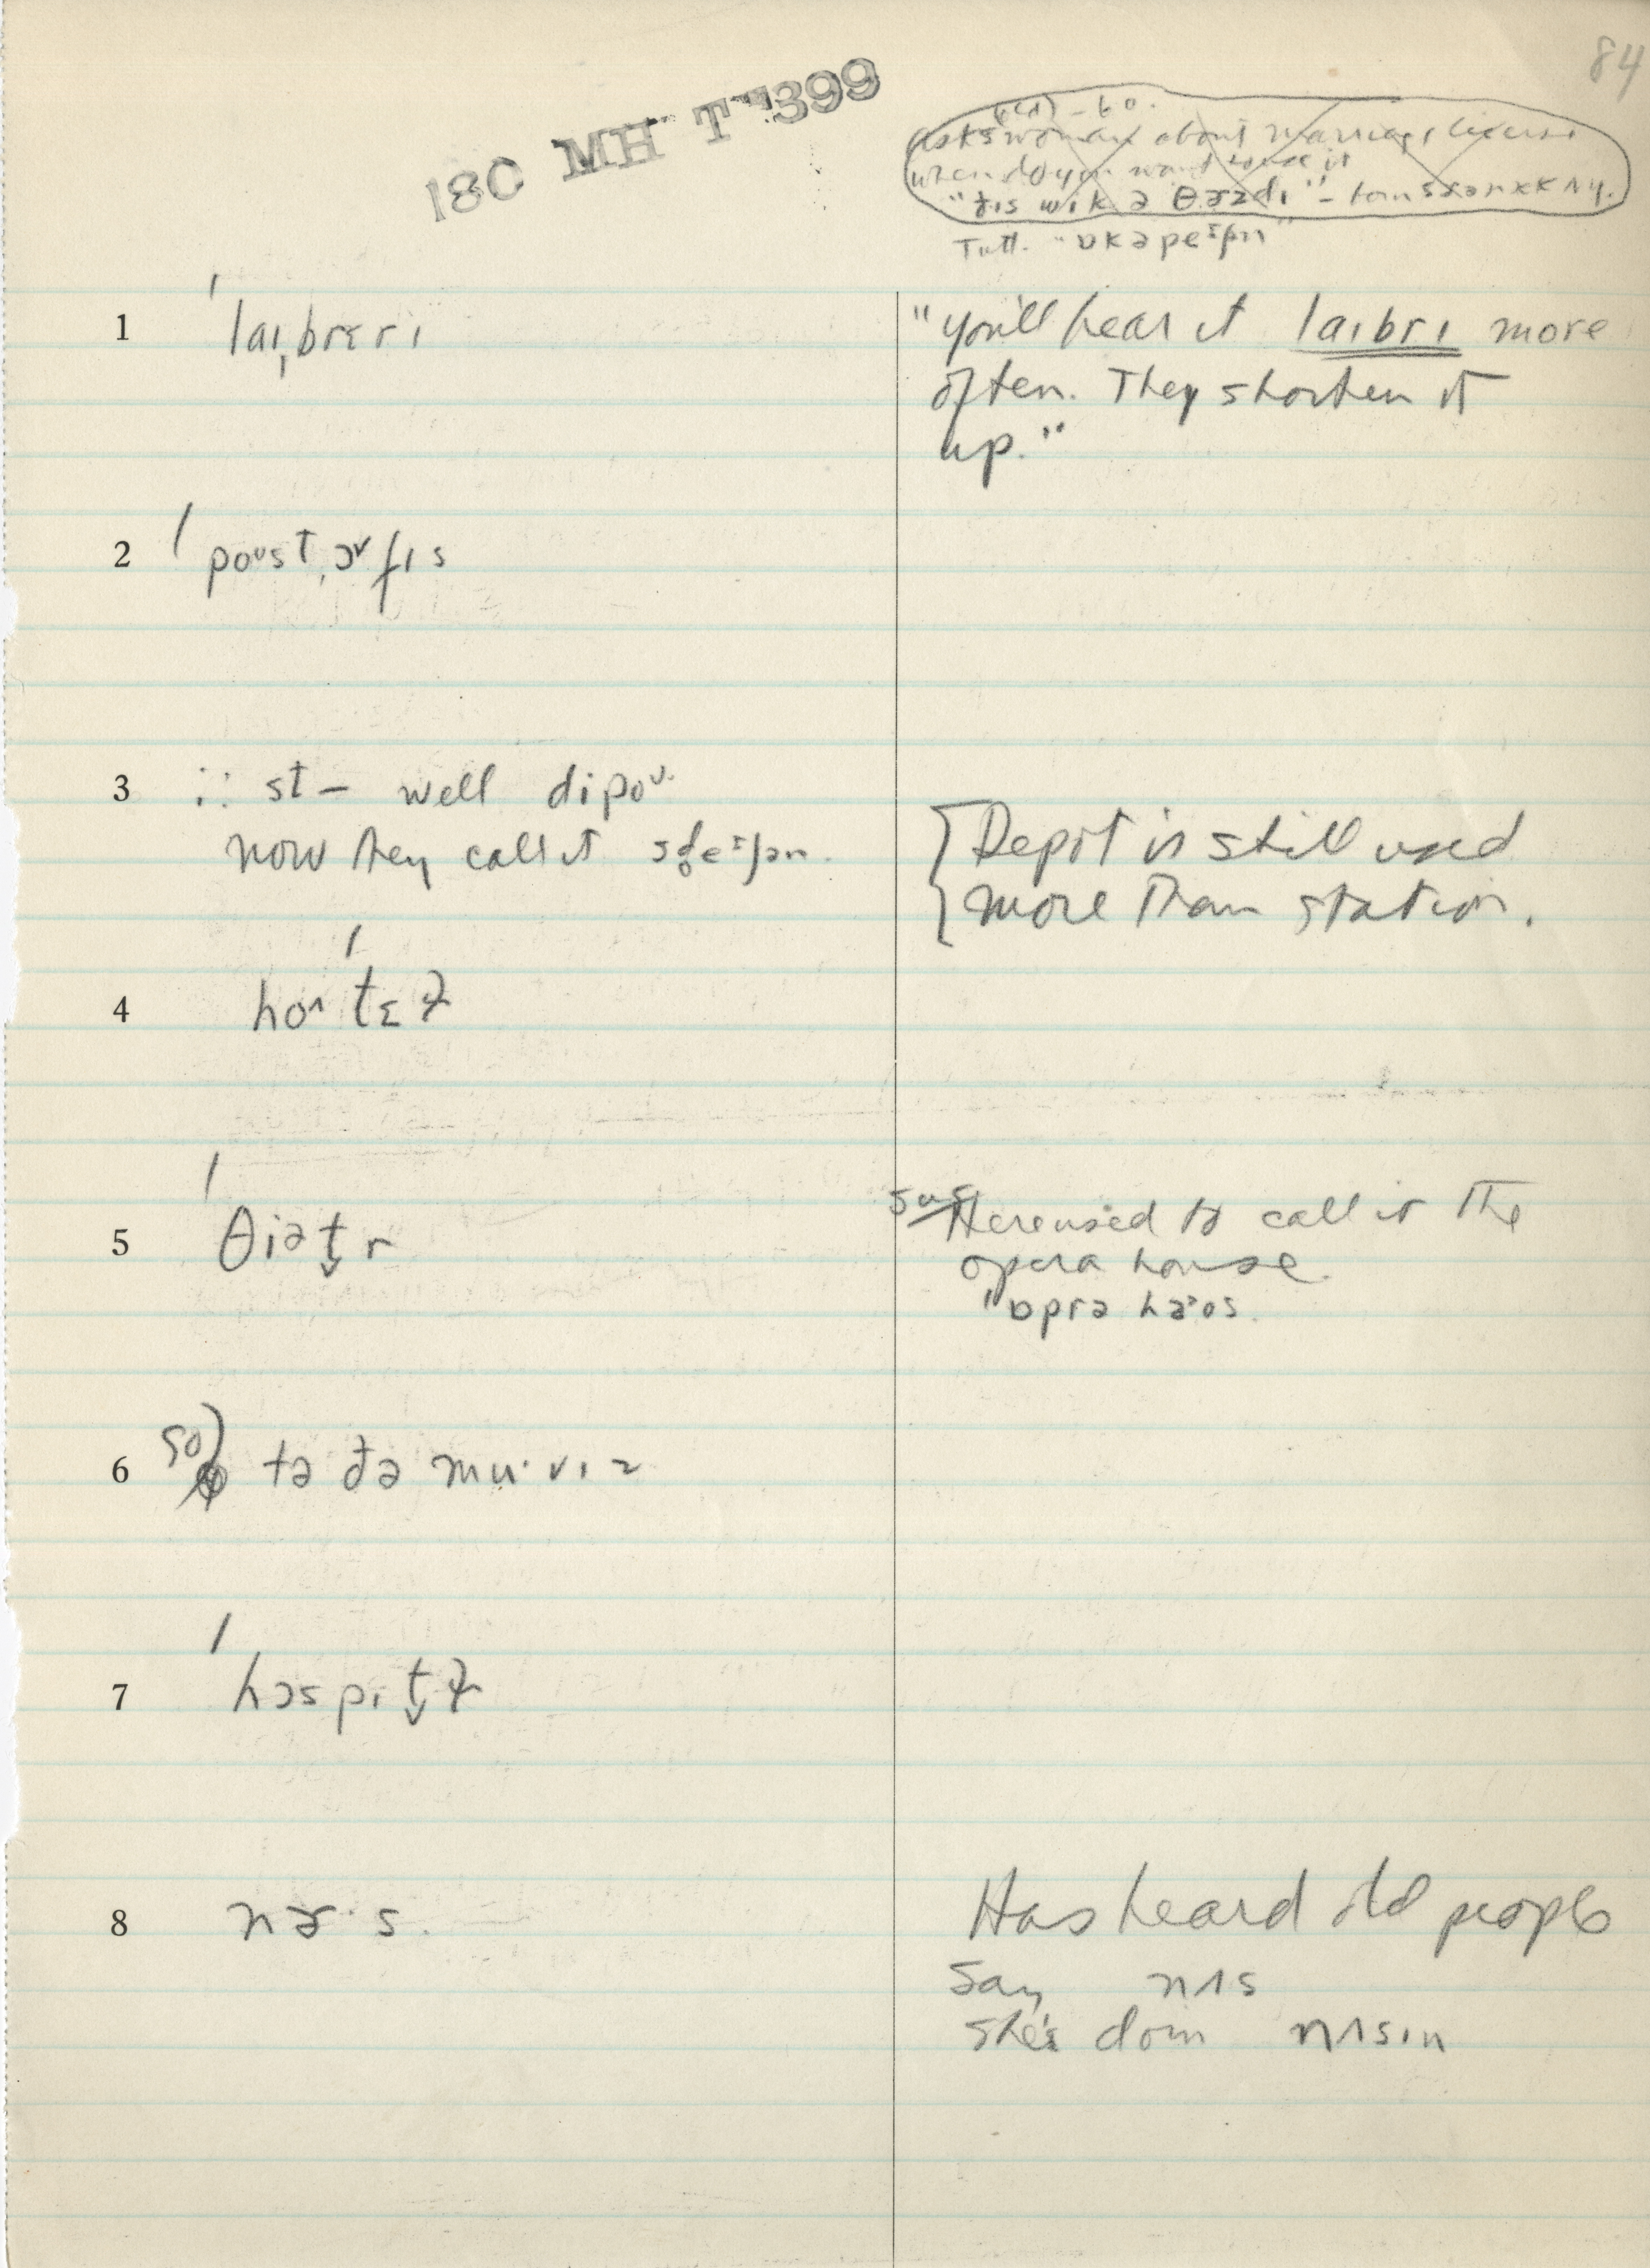 84
180 MH T 399
asks woman about marriage license
when do you want to use it
"ðɪs wik ə θɝzdi" –
Tutt. "ɒkəpeɪʃn"
1 ˈlaɪˌbrɛrɪ
"you'll hear it laɪbrɪ more
often. They shorten it
up."
2 ˈpoᴜstˌɔᵛfɪs
3 ∴ st – well dipoᴜ
now they call it sd̥eɪʃən.
{Depot is still used
more than station.
4 hoᴧˈtɛɫ
5 ˈθiət̬r
Here used to call it the
opera house.
"ɒprə haᵊos.
6 tə ðə mu·vɪz
7 ˈhɔspɪt̬ɫ
8 nɝ·s.
Has heard old people
say nʌs
she's doin nʌsɪn